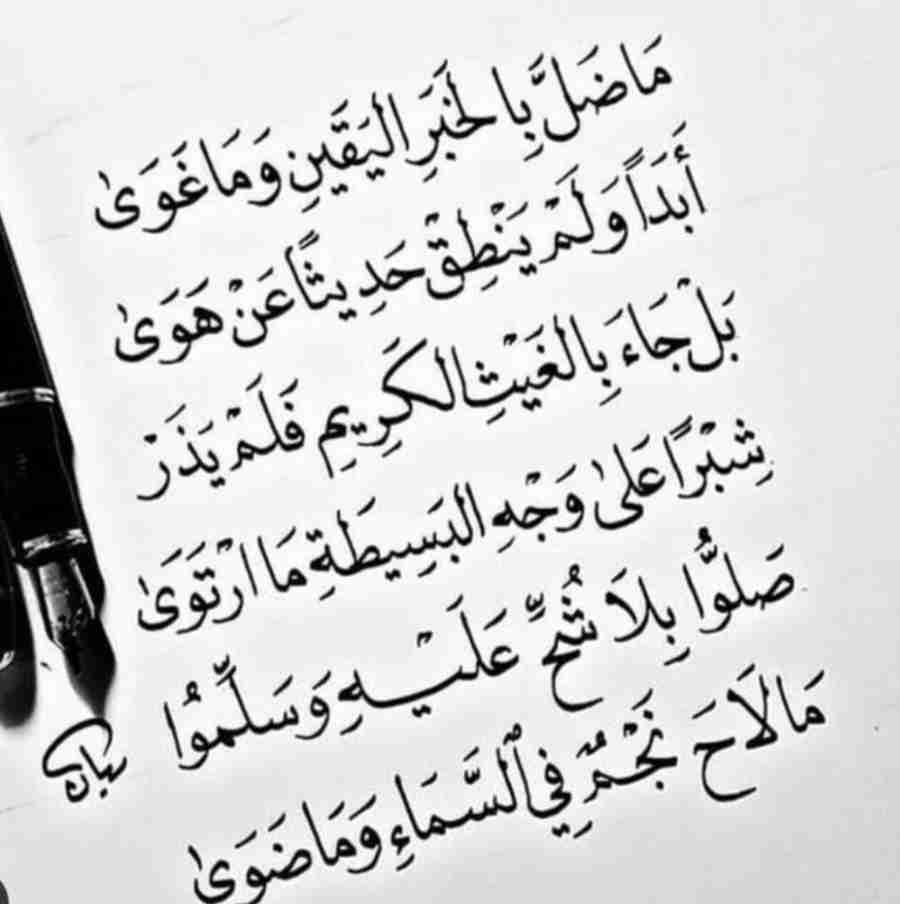 مَا ضَلَّ بِالخَبَرِ اليَقَينِ وَمَا غَوَىٰ
أَبَدَاً وَلَمْ يَنْطِقْ حَدِيثاً عَنْ هَوَىٰ
بَلْ جَاءَ بِالغَيْثِ الكَرِيمِ فَلَمْ يَذَرْ
شِبْرًا عَلىٰ وَجْهِ البَسِيطَةِ مَا ارْتَوَىٰ
صَلُّوا بِلاَ شُحٍّ عَلَيْهِ وَسَلِّمُوا
مَا لاَحَ نَجْمٌ فِي ٱلسَّمَاءِ وَمَا ضَوَىٰ